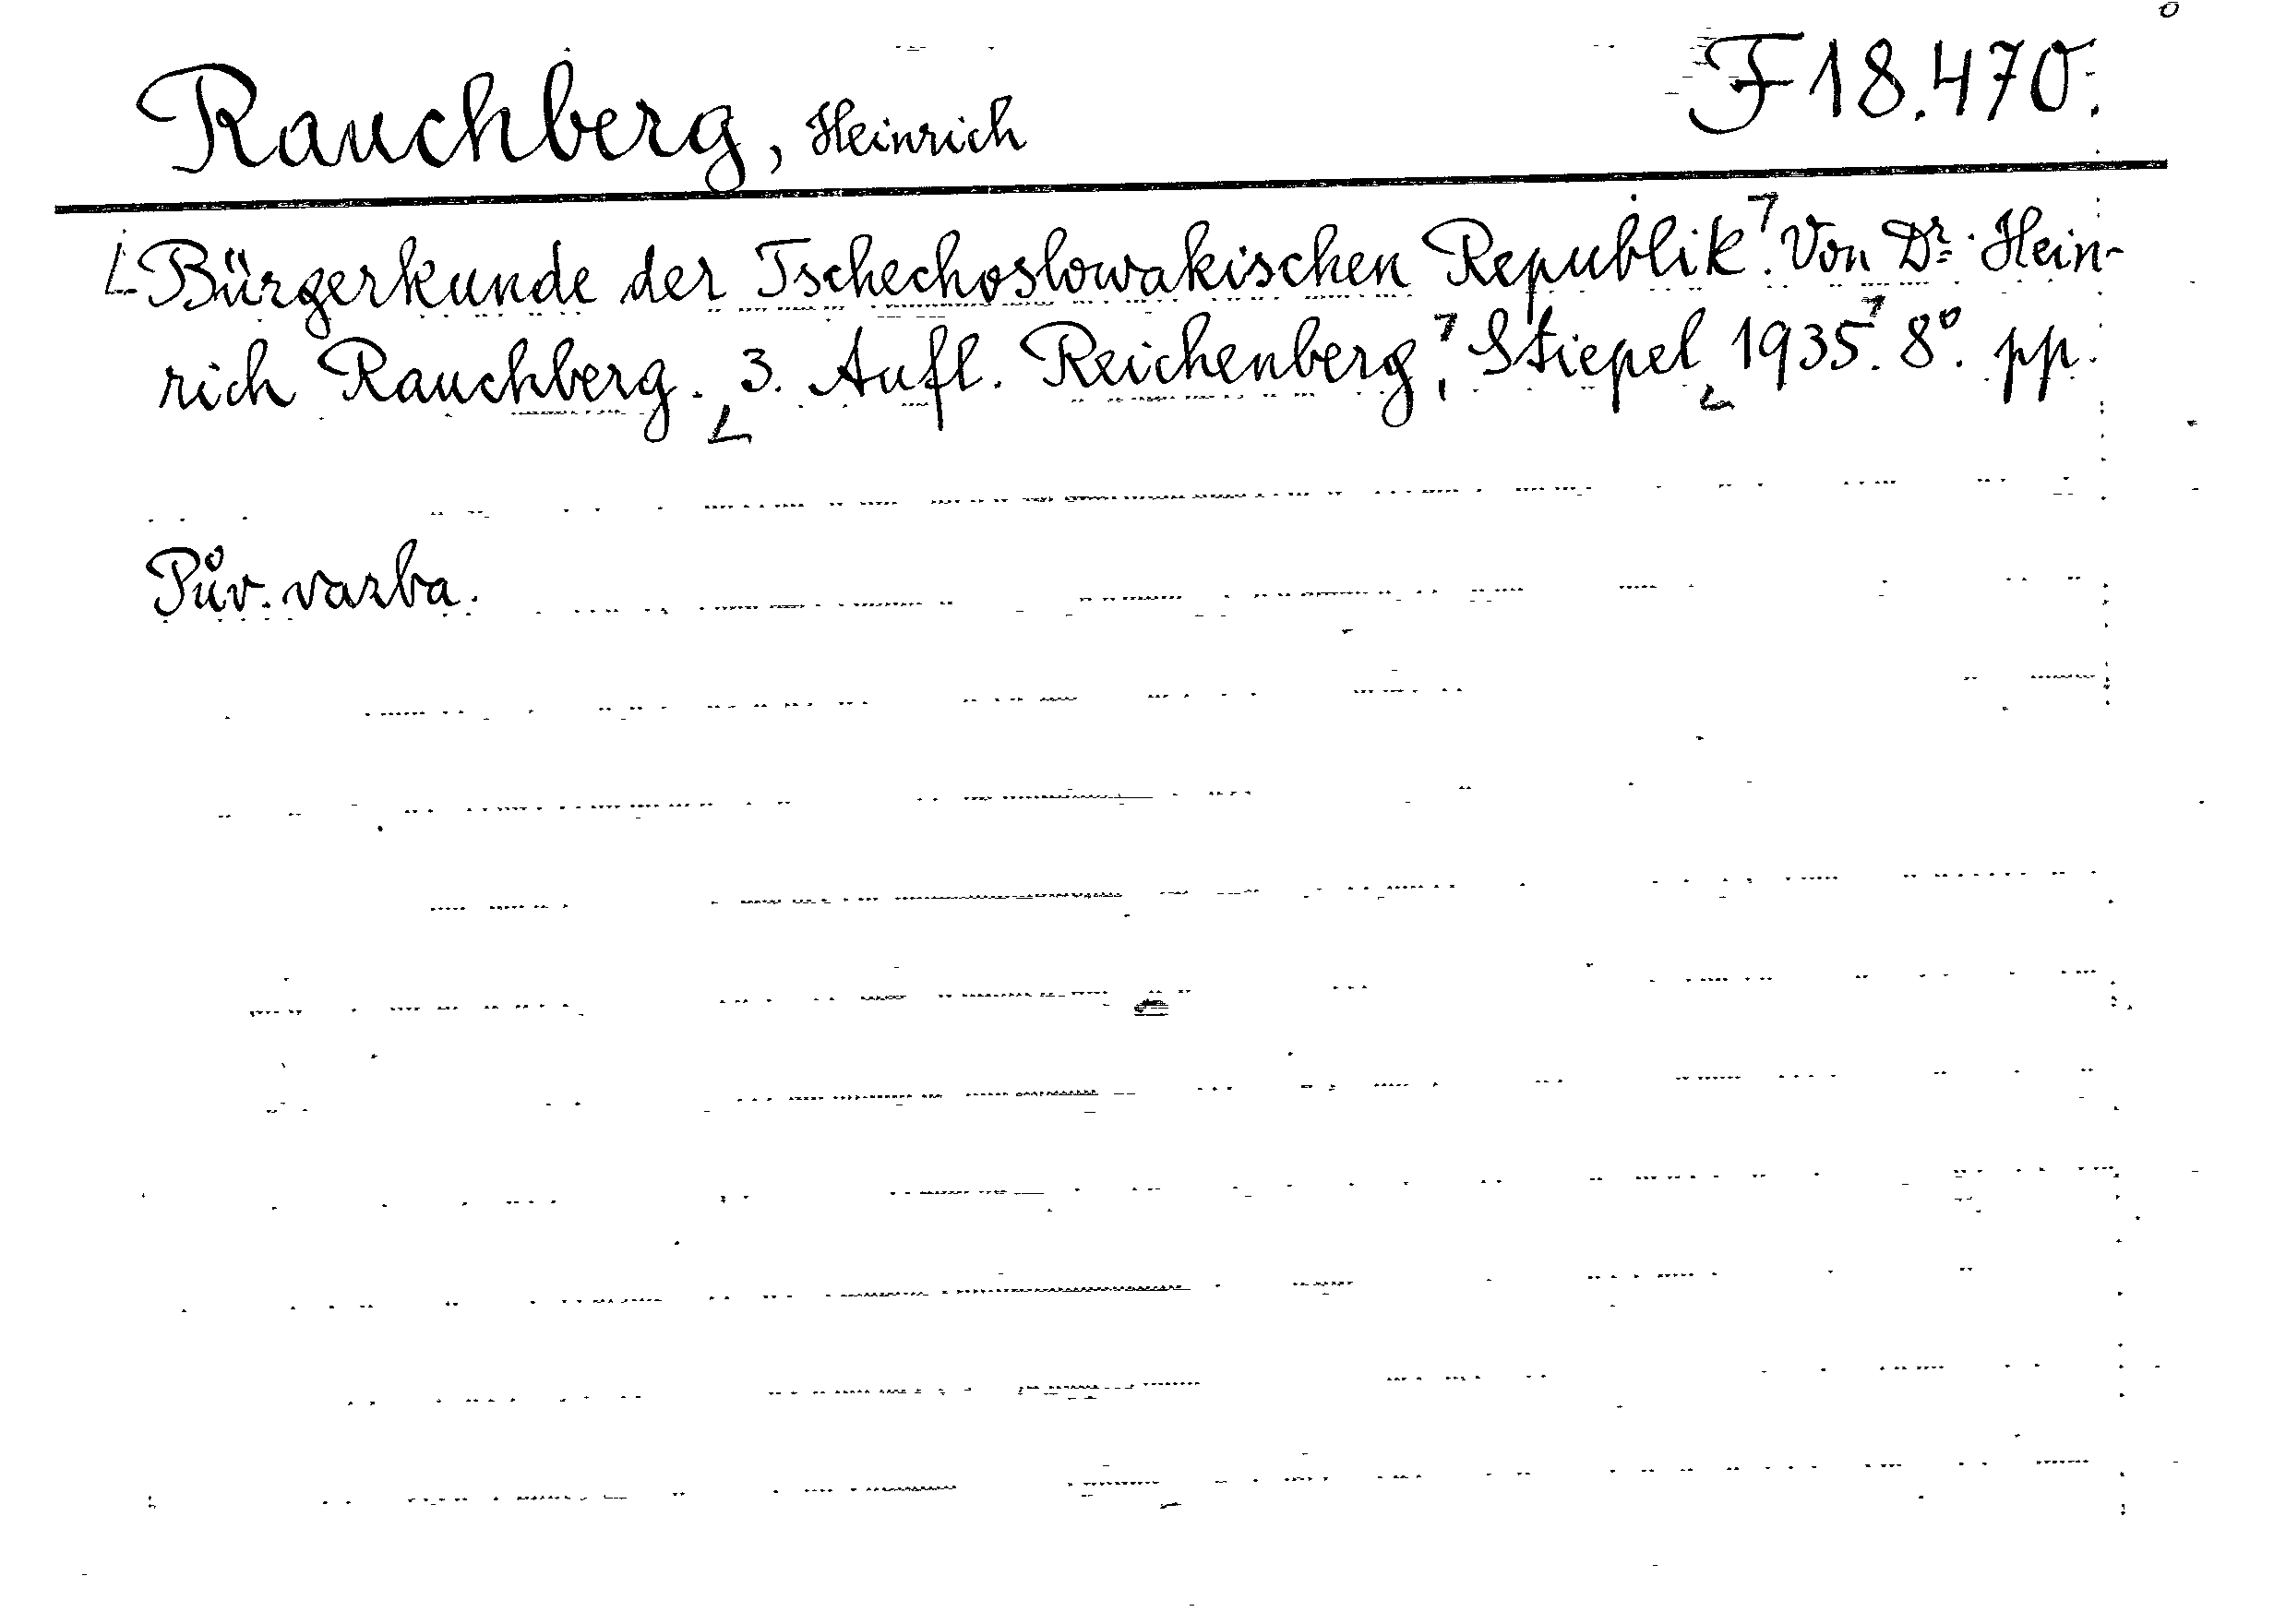 Rauchberg, Heinrich F 18.470.
Bürgerkunde der Tschechoslowakischen Republik. Von Dr. Hein-
rich Rauchberg. 3. Aufl. Reichenberg, Stiepel 1935. 8°. pp.
Pův. vazba.